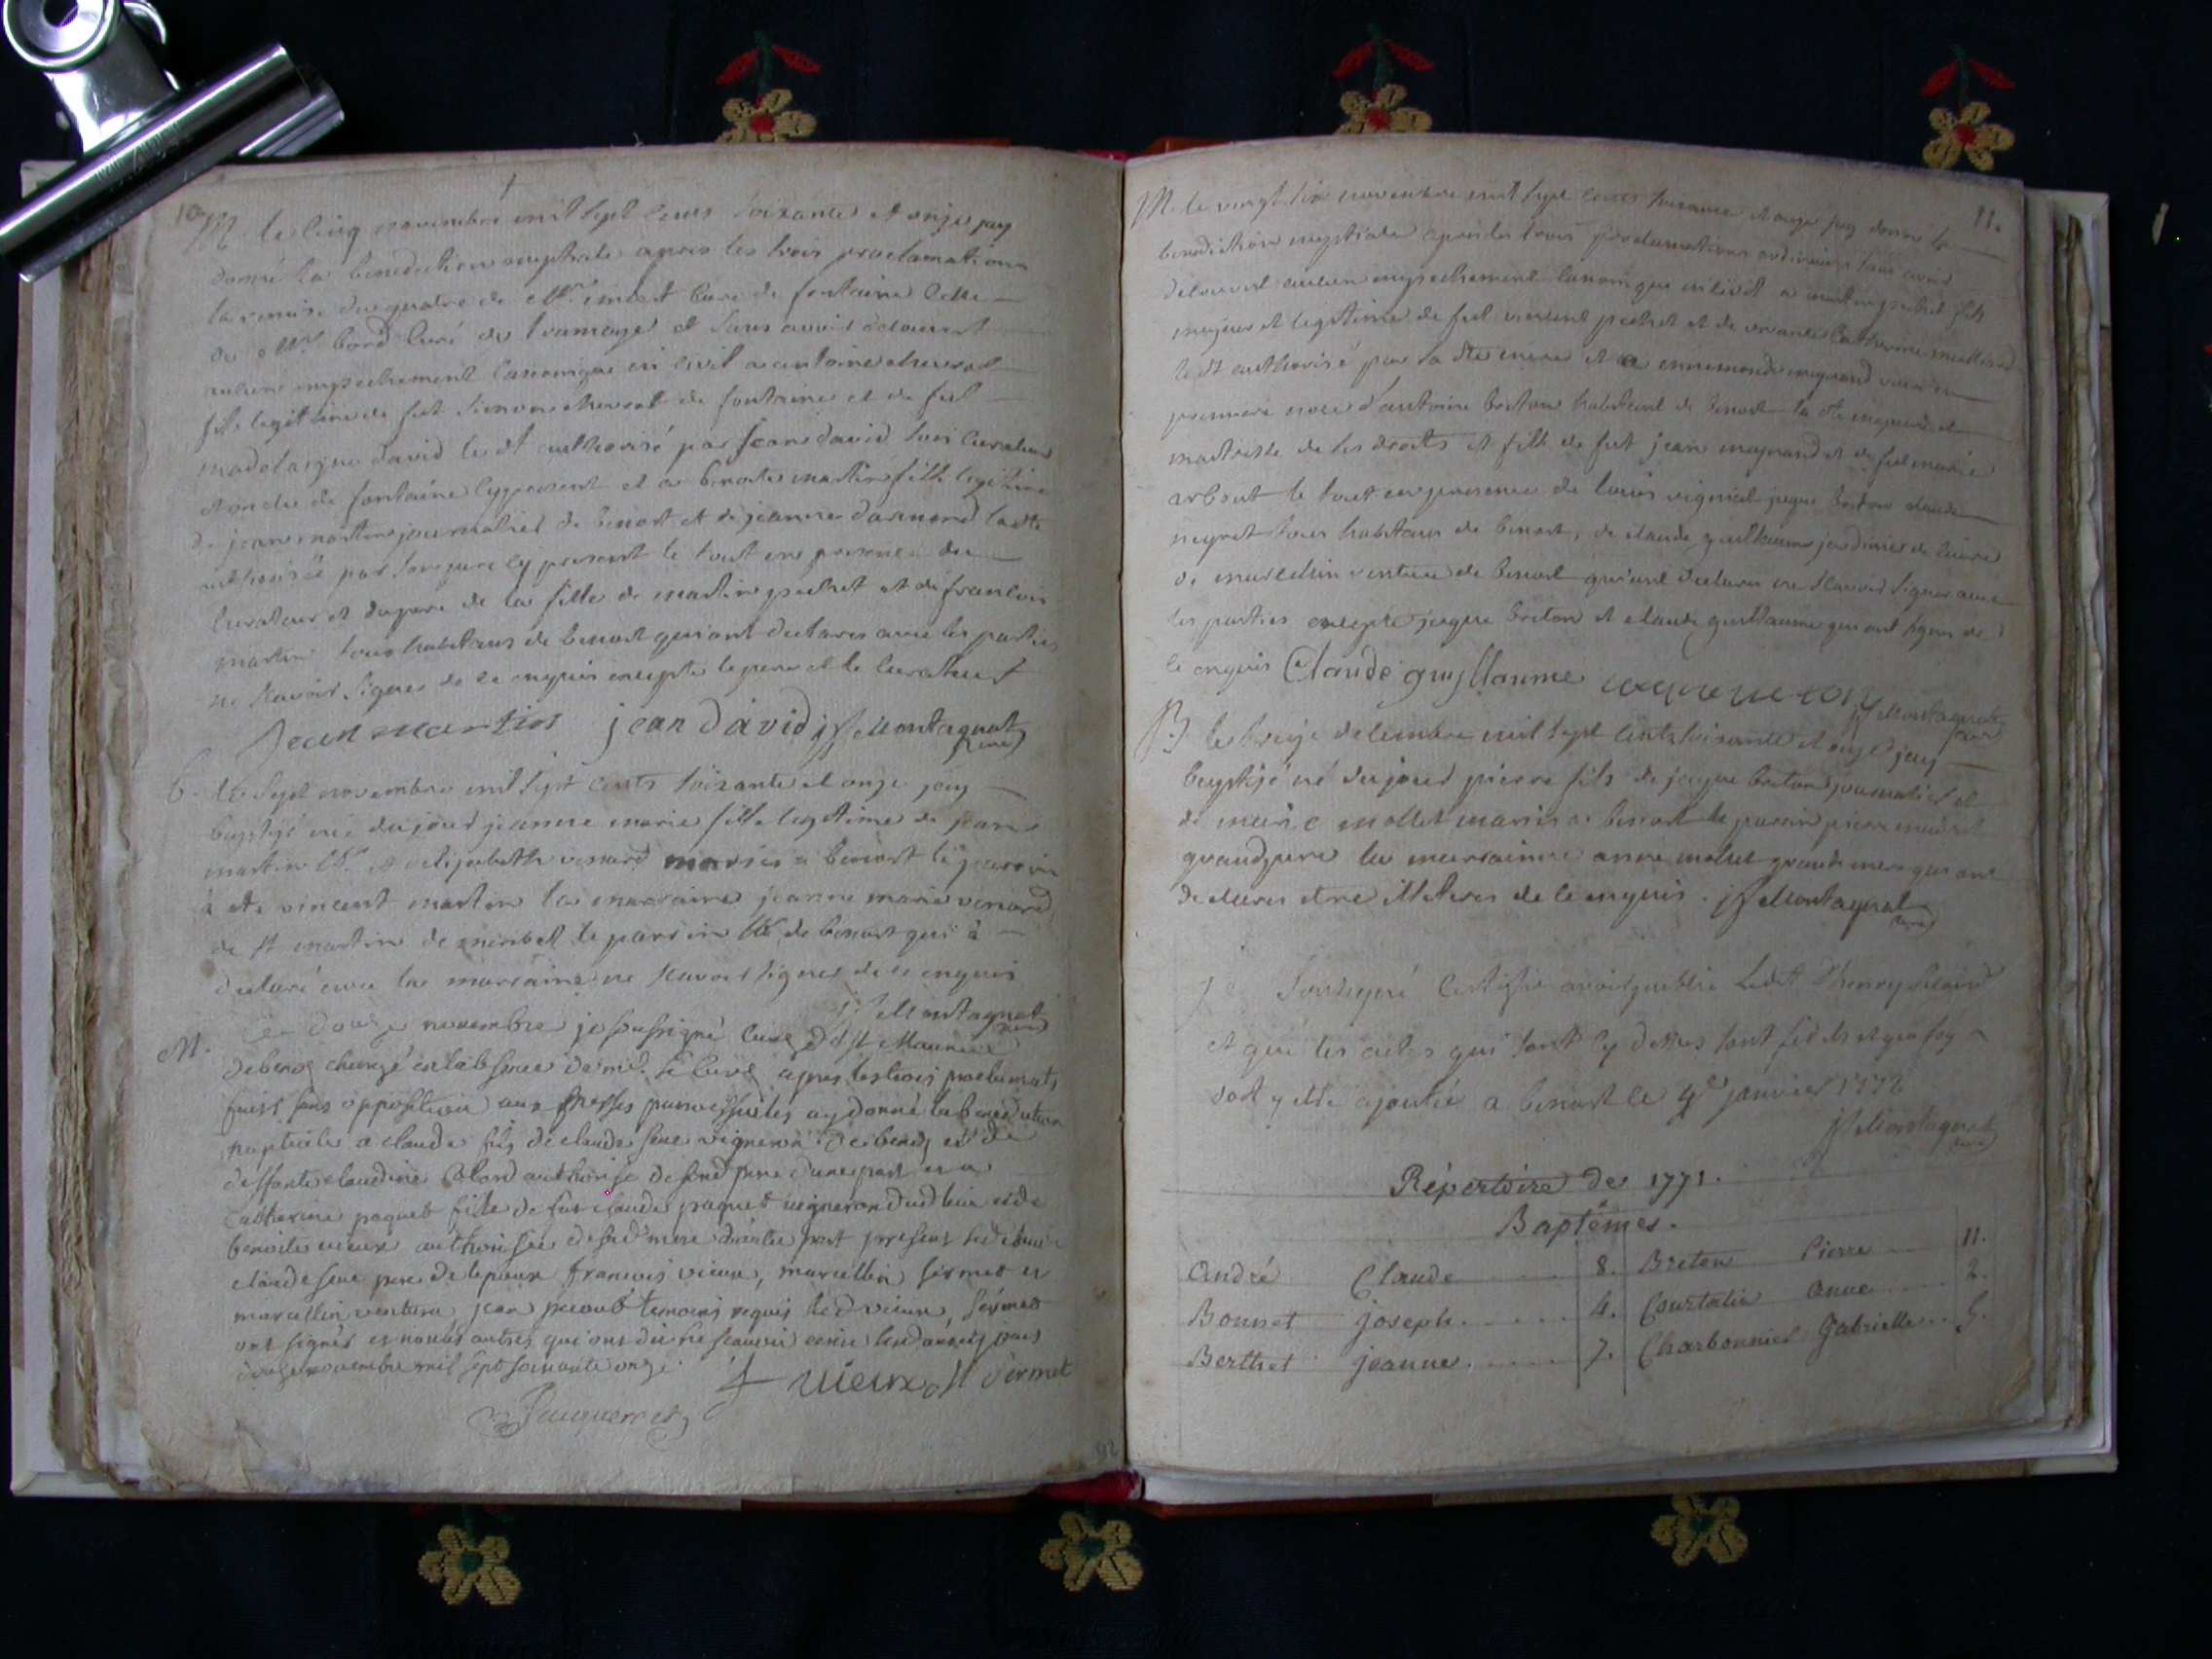 10
M. le cinq novembre mil sept cents soixante et onze jay
donné la benediction nuptiale apres les trois proclamations
la remise du quatre de Mr. imbert curé de fontaine celle
de Mr. bord curé de tramoye et sans avoir decouvert
aucun empechement canonique ni civil a antoine
fils legitime de fut simon de fontaine et de fut
madelaigne david le dt authorisé par jean david son curateur
et oncle de fontaine cy present et a benoite martin fille legitime
de jean martin journalier de benost et de jeanne la dte
authorisée par son pere cy present le tout en presence du
curateur et du pere de la fille de martin pochet et de francois
martin tous habitans de benost qui ont declarés avec les parties
ne scavoir signer de ce enquis excepté le pere et le curateur
Jean martin jean david jf Montagnat
curé
b. le sept novembre mil sept cents soixante et onze jay
baptizé née du jour jeanne marie fille legitime de jean
martin et elizabeth venard mariés a benost le parrin
à eté vincent martin la marraine jeanne marie venard
de st martin de miribell le parrin de benost qui à
declaré avec la marraine ne scavoir signer de ce enquis
jf Montagnat
curé
M. Le Douze novembre je soussigné curé de st Maurice
De benoz chargé en l'absence de mr. le curé apres les trois proclamats
faits sans opposition aux messes parroissiales ay donné la benediction
nuptiale a claude fils de claude vigneron de benoz et de
deffunte claudine authorisé de son pere d'une part et a
catherine paquet fille de fut claude paquet vigneron dud lieu et de
benoite vieux authorisée de sad mere d'autre part present
claude pere de lepoux francois vieux, marcellin sermet et
marcellin ventura jean temoins requis led vieux, sermet
ont signés et non les autres qui ont dit ne scavoir
douze novembre mil sept soixante onze.
f vieux M Sermet
Jacquemet
92
M. le vingt six novembre mil sept cents soixante et onze jay donné la 11.
benediction nuptiale apres les trois proclamations ordinaires sans avoir
decouvert aucun empechement canonique ni civil a pochet fils
majeur et legitime de fut vincent pochet et de vivante catherine
le dt authorisé par sa dte mere et a ennemonde mignand veuve en
premiere noce d'antoine breton habitant de benost la dte majeure et
maitresse de ses droits et fille de fut jean mignand et de fut marie
arbout le tout en presence de louis vignial jaque breton claude
neyret tous habitans de benost, de claude guillaume jardinier de
de marcellin ventura de benost qui ont declarés ne scavoir signer avec
les parties excepté jaque breton et claude guillaume qui ont signé de
ce enquis Claude guyllaume
jf Montagnat
curé
B le treize decembre mil sept cents soixante et onze jay
baptizé né du jour pierre fils de jaque breton journalier et
de marie mollet mariés a benost le parrin pierre
grandpere la marraine anne molet grande mere qui ont
declarés etre illeteres de ce enquis. jf Montagnat
curé
je soussigné certifie avoir publié Ledit d'henry second
et que les actes qui sont cy dessus sont fideles et que foy
doit y etre ajoutée a benost ce 4e janvier 1772
jf Montagnat
curé
Répertoire de 1771.
Baptêmes.
André Claude 8. Breton Pierre 11.
Bonnet joseph 4. Courtalin Anne 2.
Berthet jeanne 7. Charbonnier Gabrielle 5.